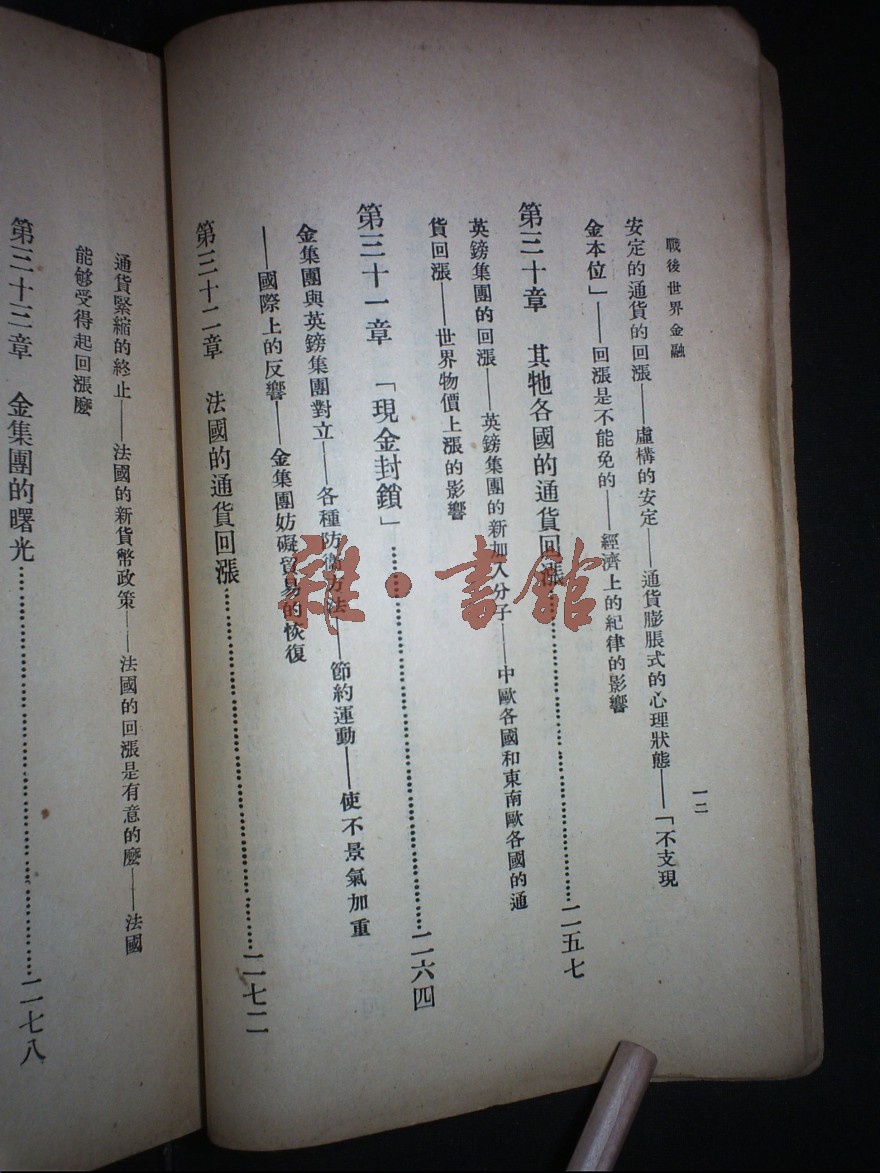 戰後世界金融
一二
安定的通貨的回漲——虛構的安定——通貨膨脹式的心理狀態——「不支現
金本位」——回漲是不能免的——經濟上的紀律的影響
第三十章　其牠各國的通貨回漲……二五七
英鎊集團的回漲——英鎊集團的新加入分子——中歐各國和東南歐各國的通
貨回漲——世界物價上漲的影響
第三十一章　「現金封鎖」……二六四
金集團與英鎊集團對立——各種防衛方法——節約運動——使不景氣加重
——國際上的反響——金集團妨礙貿易的恢復
第三十二章　法國的通貨回漲……二七二
通貨緊縮的終止——法國的新貨幣政策——法國的回漲是有意的麼——法國
能够受得起回漲麼
第三十三章　金集團的曙光……二七八
雜·書館